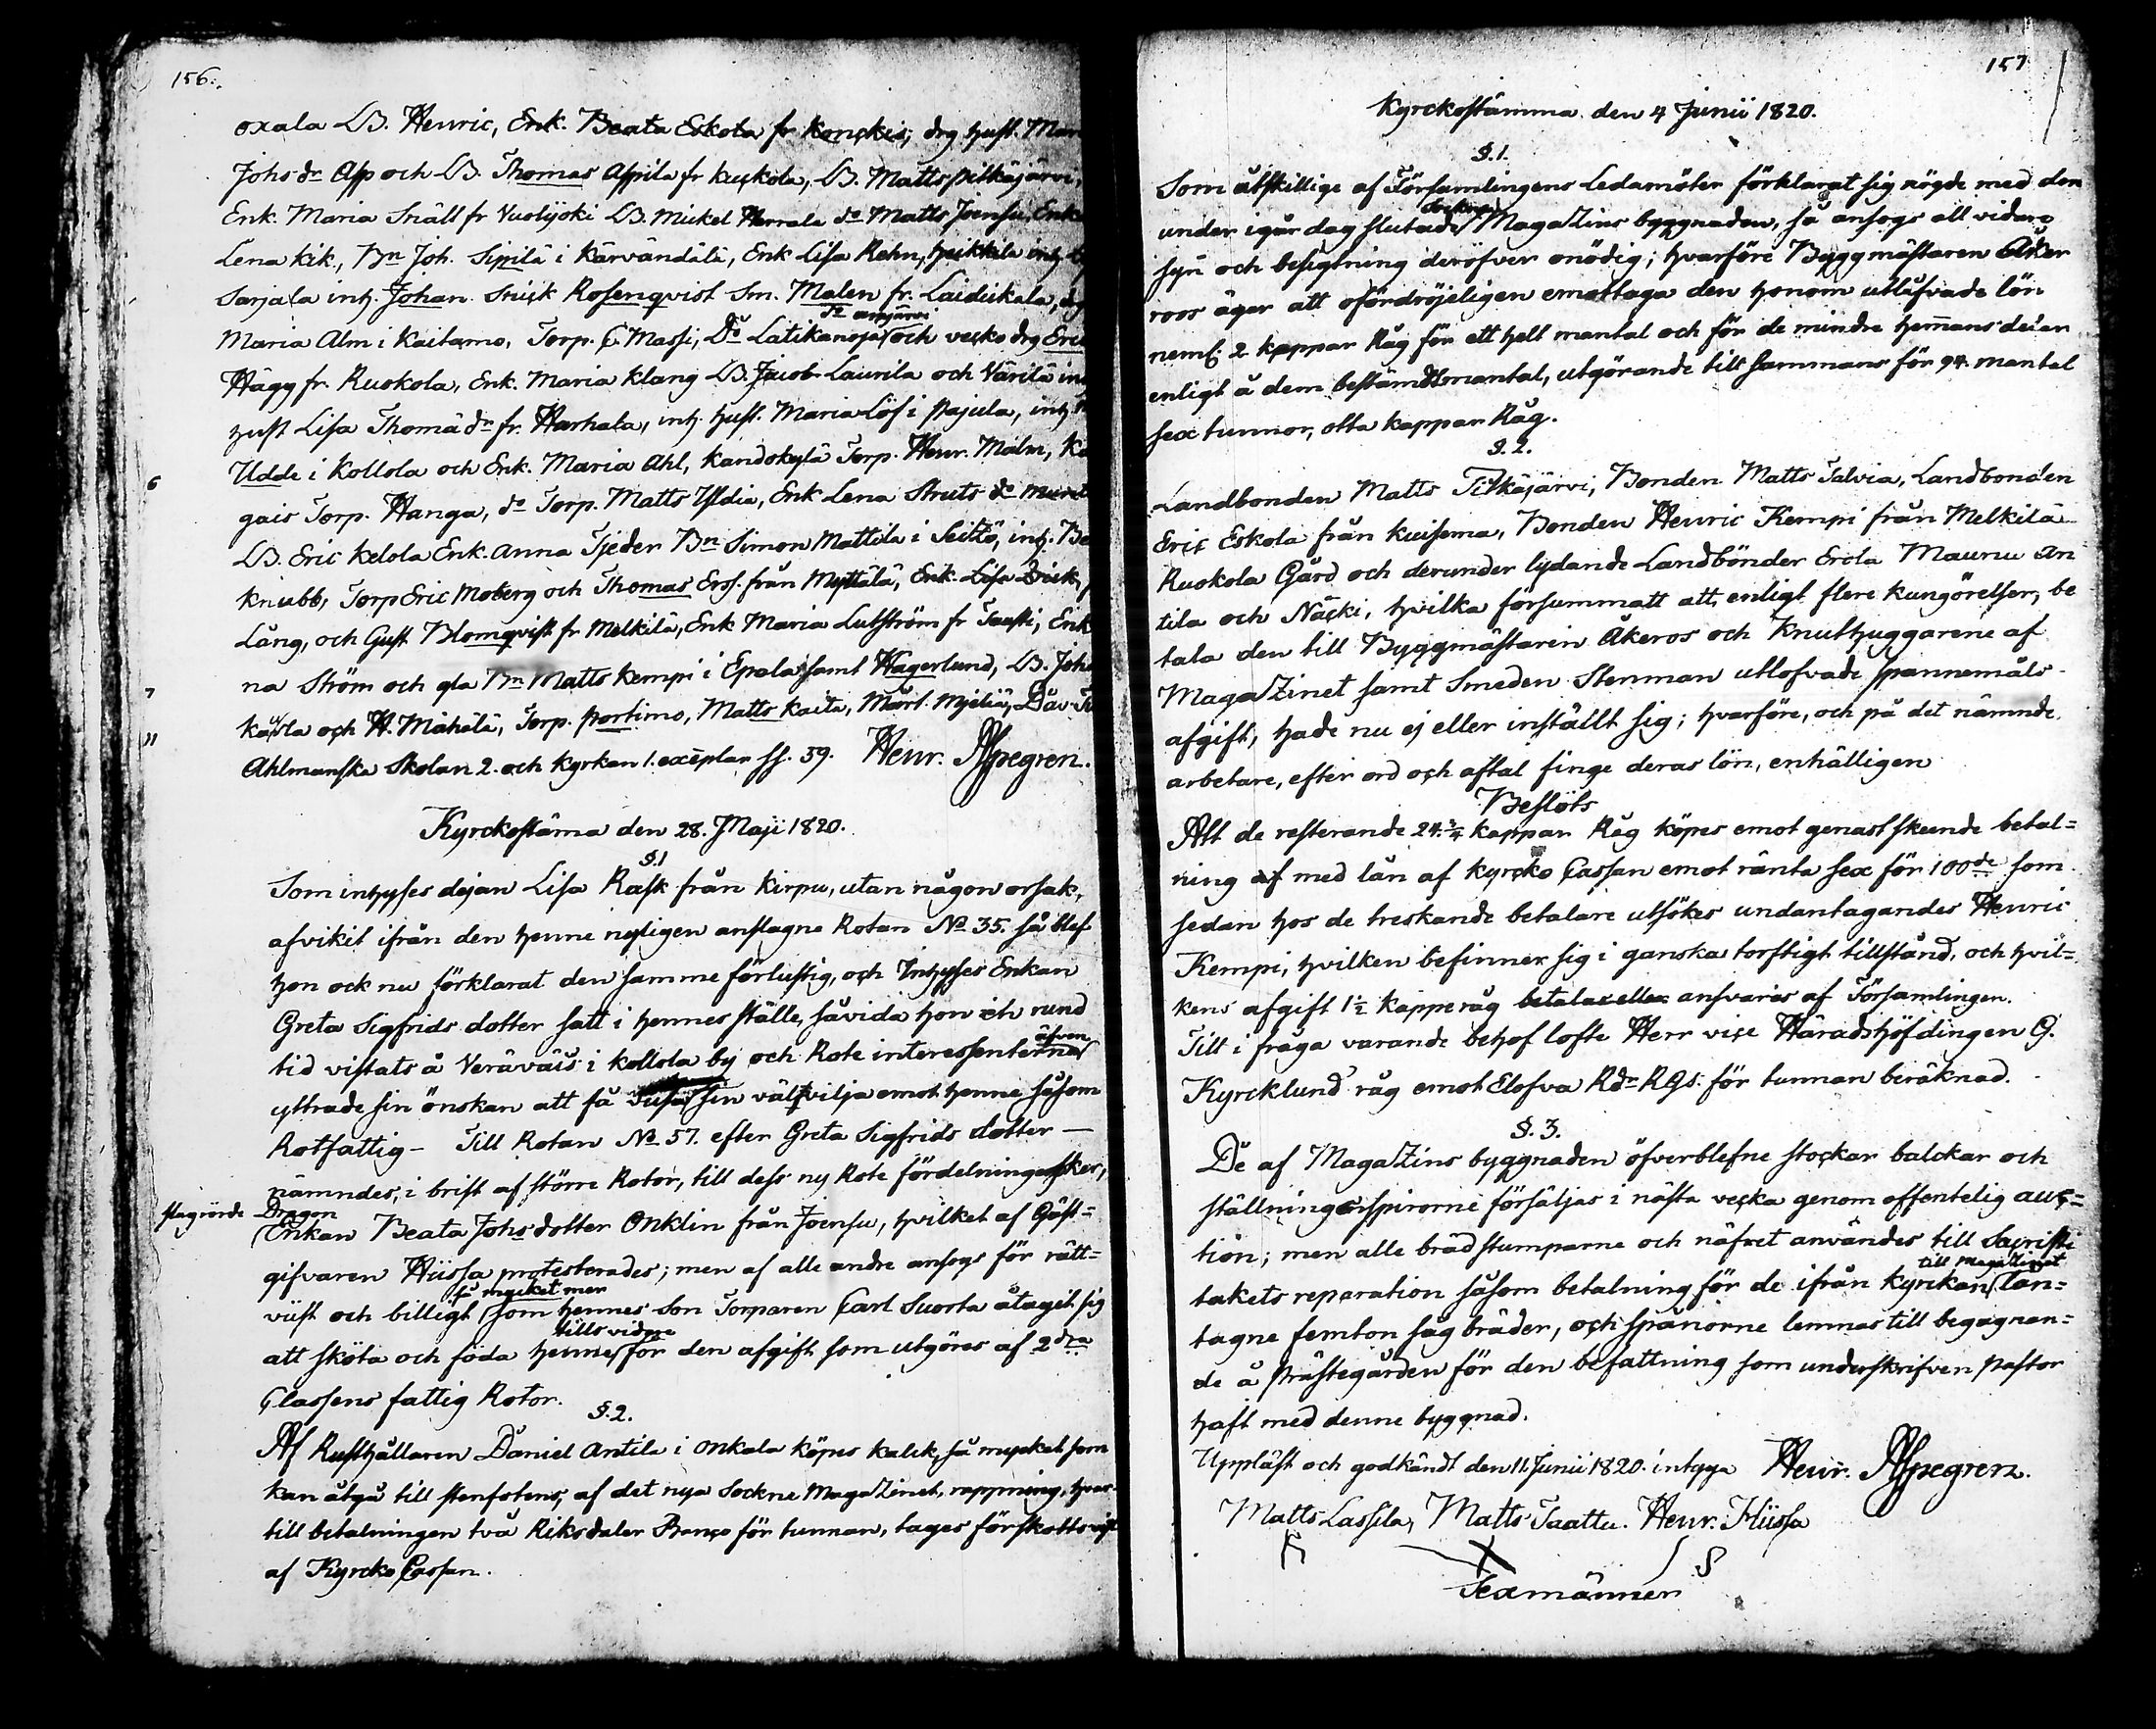 156.
oxala LB. Henric, Enk. Beata Eskola fr Konckis, drg hust. Mar
Johs dr Asp och LB. Thomas Appila fr Kuckola, LB. Matts Pitkäjärvi,
Enk. Maria Snäll fr Vuolijoki LB. Mickel Harrala do Matts Joensu, Enk
Lena Kik, Bn Joh. Sippilä i Kärvändälä, Enk Lisa Rehn, Heikkilä inh
Sarjala inh. Johan Snick Rosenqvist Sm. Malen fr. Laidickala, drg
do amjärvi
Maria Alm i Kaitamo, Torp. Massi, Do Latikanoja och vecko drg Eric
Hägg fr Ruokola, Enk. Maria Klang LB. Jacob Laurila och Värilä in
hust Lisa Thomä dr fr. Harhala, inh. hust. Maria Löf i Pajula, inh
6 Udde i Kollola och Enk. Maria Ahl, Kandokylä Torp. Henr. Malm, K
gais Torp. Hanga, do Torp. Matts Yldia, Enk Lena Struts do
LB. Eric Kelola Enk. Anna Tjeder Bn Simon Mattila i Seitzö, inh. Be
Knubb, Torp Eric Moberg och Thomas Ers. från Myttälä, Enk. Lisa Brisk,
Lång, och Gust Blomqvist fr Melkilä, Enk Maria Lutström fr Tausti, Enk
7 na Ström och gla Bn Matts Kempi i Epala samt Hagerlund, LB. Joh
" kaula och H. Mähälä, Torp. Portimo, Matts Kaita, Mårt. Mjeliä, Dav.
Ahlmanska Skolan 2. och Kyrkan 1. exēplar ss. 59. Henr. Aspegren.
Kyrckostām̄a den 28. Maji 1820.
§.1
Som inhyses dejan Lisa Rask från Kirpu, utan någon orsak,
afvikit ifrån den henne nyligen anslagne Rotan No 35. så blef
hon ock nu förklarat den samme förlustig, och Inhyses Enkan
Greta Sigfrids dotter satt i hennes ställe, såvida hon rund
äfven
tid vistats å Veräväis i Kollola by och Rote interessenterna
yttrade sin önskan att få sin välvilja emot henne såsom
Rotfattig – Till Rotan No 57. efter Greta Sigfrids dotter —
nämndes, i brist af större Rotor, till dess ny Rote fördelning sker,
slagrörde Dragon
Enkan Beata Johs dotter Onklin från Joensu, hvilket af Gäst=
gifvaren Hüssa protesterades; men af alle andre ansogs för rätt=
så mycket mer
vist och billigt som hennes son Torparen Carl Suorta åtagit sig
tills vidare
att sköta och föda henne för den afgift som utgöres af 2dra
Classens fattig Rotor.
§.2.
Af Rusthållaren Daniel Antila i Onkala köpes kalck, så mycket som
kan åtgå till stenfotens, af det nya Sockne MagaZinet, rappning, hvar-
till betalningen två Riksdaler Banco för tunnan, tages förskottsvist
af Kyrcko Cassan.
157
Kyrckostämma den 4 Junii 1820.
§.1.
Som åtskillige af Församlingens Ledamöter förklarat sig nögde med den
Sockne
under igår dag slutade MagaZins byggnaden, så ansogs all vidare
syn och besigtning deröfver onödig; hvarföre Byggmästaren Åker
roos äger att ofördröjeligen emottaga den honom utlåfvade lön
neml: 2 kappar Råg för ett helt mantal och för de mindre hem̄ans delar
enligt å dem bestämdt mantal, utgörande till sammans för 94 mantal
sex tunnor, otta kappar Råg.
§.2.
Landbonden Matts Pitkäjärvi, Bonden Matts Talvia, Landbonden
Eric Eskola från Kuisema, Bonden Henric Kempi från Melkilä
Ruokola Gård och derunder lydande Landbönder Erola Maunu An
tila och Näcki, hvilka försummatt att enligt flere kungörelser, be
tala den till Byggmästaren Åkeros och Knuthuggarene af
MagaZinet samt Smeden Stenman utlofvade spannemåls
afgift, hade nu ej eller inställt sig; hvarföre, och på det nämnde
arbetare, efter ord och aftal finge deras lön, enhälligen
Beslöts
Att de resterande 24 3/4 kappar Råg köpes emot genast skeende betal=
ning af med lån af Kyrcko Cassan emot ränta sex för 100de som
sedan hos de treskande betalare utsökes undantagandes Henric
Kempi, hvilken befinner sig i ganska torftigt tillstånd, och hvil=
kens afgift 1 1/2 kappe råg betalas eller ansvaras af Församlingen.
Till i fråga varande behof lofte Herr vice Häradshöfdingen G.
Kyrcklund råg emot Elofva Rdr RGs. för tunnan beräknad.
§.3.
De af MagaZins byggnaden öfverblefne stockar balckar och
ställningsspirorne försäljas i nästa vecka genom offentelig auc=
tion; men alle brädstumparne och näfret användes till Sacristi
till MagaZinet
takets reparation såsom betalning för de ifrån Kyrckan lån=
tagne femton såg bräder, och spånorne lemnas till begagnan=
de å Prästegården för den befattning som underskrifven Pastor
haft med denne byggnad.
Uppläst och godkändt den 11. Junii 1820. intyga Henr. Aspegren.
Matts Lassila, Matts Taattu. Henr. Hüssa
Sexmänner